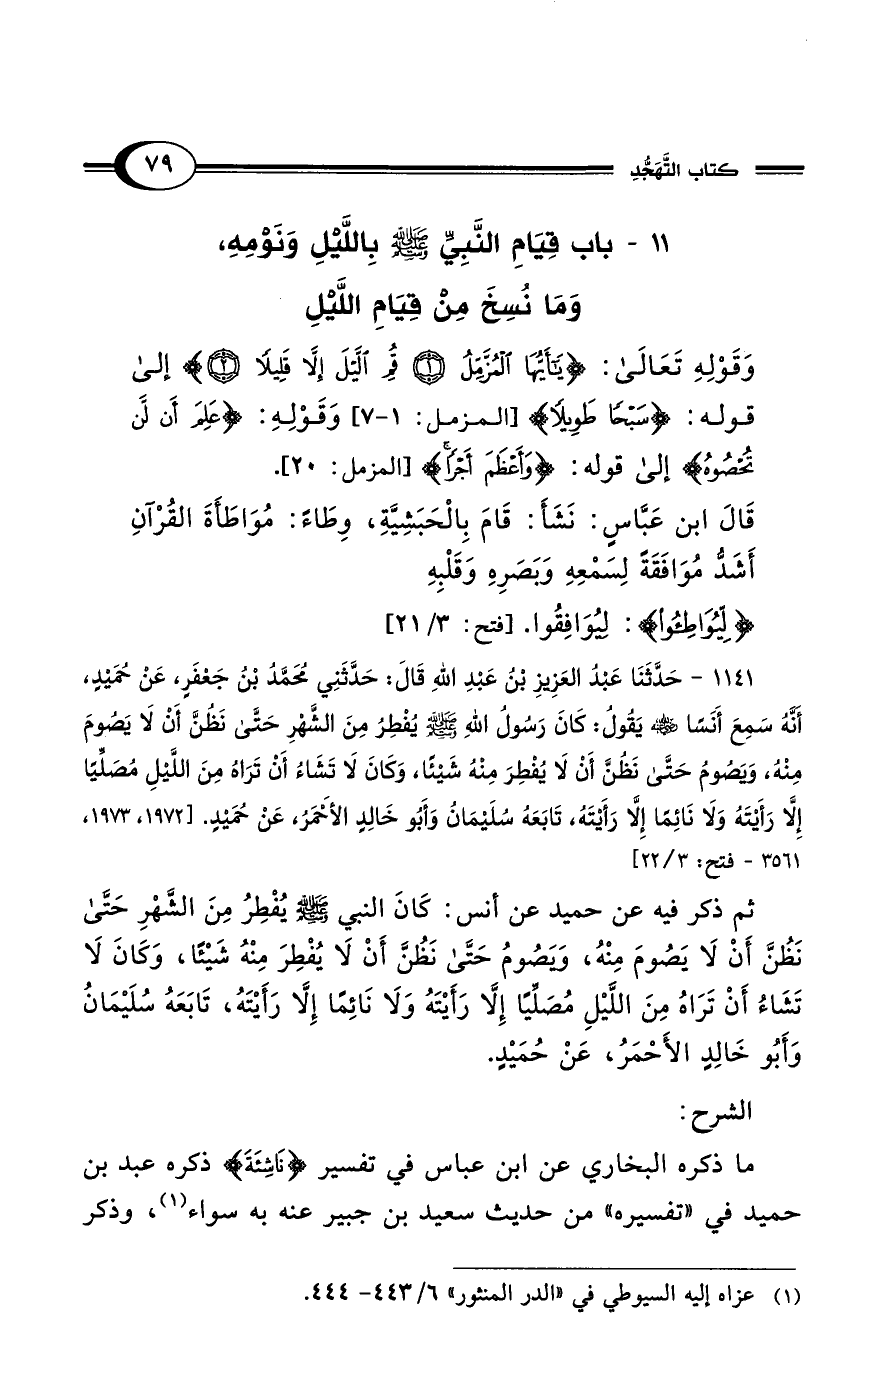 كتاب التَّهَجُّدِ ٧٩
١١ - باب قِيَامِ النَّبِيِّ ﷺ بِاللَّيْلِ وَنَوْمِهِ،
وَمَا نُسِخَ مِنْ قِيَامِ اللَّيْلِ
وَقَوْلِهِ تَعَالَىٰ: ﴿يَٰٓأَيُّهَا ٱلْمُزَّمِّلُ ۝١ قُمِ ٱلَّيْلَ إِلَّا قَلِيلًا ۝٢﴾ إلىٰ
قوله: ﴿سَبْحًا طَوِيلًا﴾ [المزمل: ١-٧] وَقَوْلِهِ: ﴿عَلِمَ أَن لَّن
تُحْصُوهُ﴾ إلىٰ قوله: ﴿وَأَعْظَمَ أَجْرًا﴾ [المزمل: ٢٠].
قَالَ ابن عَبَّاسٍ: نَشَأَ: قَامَ بِالْحَبَشِيَّةِ، وِطَاءً: مُوَاطَأَةَ القُرْآنِ
أَشَدُّ مُوَافَقَةً لِسَمْعِهِ وَبَصَرِهِ وَقَلْبِهِ
﴿لِّيُوَاطِـُٔوا۟﴾: لِيُوَافِقُوا. [فتح: ٢١/٣]
١١٤١ - حَدَّثَنَا عَبْدُ العَزِيزِ بْنُ عَبْدِ اللهِ قَالَ: حَدَّثَنِي مُحَمَّدُ بْنُ جَعْفَرٍ، عَنْ حُمَيْدٍ،
أَنَّهُ سَمِعَ أَنَسًا رضي الله عنه يَقُولُ: كَانَ رَسُولُ اللهِ ﷺ يُفْطِرُ مِنَ الشَّهْرِ حَتَّىٰ نَظُنَّ أَنْ لَا يَصُومَ
مِنْهُ، وَيَصُومُ حَتَّىٰ نَظُنَّ أَنْ لَا يُفْطِرَ مِنْهُ شَيْئًا، وَكَانَ لَا تَشَاءُ أَنْ تَرَاهُ مِنَ اللَّيْلِ مُصَلِّيًا
إِلَّا رَأَيْتَهُ وَلَا نَائِمًا إِلَّا رَأَيْتَهُ، تَابَعَهُ سُلَيْمَانُ وَأَبُو خَالِدٍ الأَحْمَرُ، عَنْ حُمَيْدٍ. [١٩٧٢، ١٩٧٣،
٣٥٦١ - فتح: ٢٢/٣]
ثم ذكر فيه عن حميد عن أنس: كَانَ النبي ﷺ يُفْطِرُ مِنَ الشَّهْرِ حَتَّىٰ
نَظُنَّ أَنْ لَا يَصُومَ مِنْهُ، وَيَصُومُ حَتَّىٰ نَظُنَّ أَنْ لَا يُفْطِرَ مِنْهُ شَيْئًا، وَكَانَ لَا
تَشَاءُ أَنْ تَرَاهُ مِنَ اللَّيْلِ مُصَلِّيًا إِلَّا رَأَيْتَهُ وَلَا نَائِمًا إِلَّا رَأَيْتَهُ، تَابَعَهُ سُلَيْمَانُ
وَأَبُو خَالِدٍ الأَحْمَرُ، عَنْ حُمَيْدٍ.
الشرح:
ما ذكره البخاري عن ابن عباس في تفسير ﴿نَاشِئَةَ﴾ ذكره عبد بن
حميد في «تفسيره» من حديث سعيد بن جبير عنه به سواء(١)، وذكر
(١) عزاه إليه السيوطي في «الدر المنثور» ٤٤٣/٦- ٤٤٤.